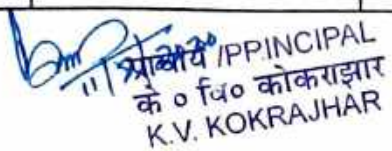 प्राचार्य /PPINCIPAL
के ० वि० कोकराझार
K.V. KOKRAJHAR